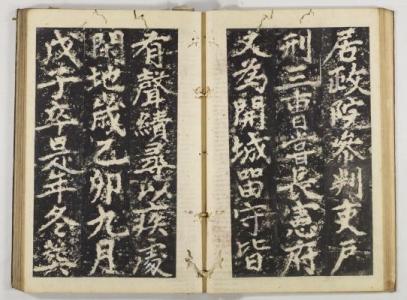 居政院參判吏戶
刑三曹嘗長憲府
又為開城留守皆
有聲績尋以疾處
閑地歲乙卯九月
戊子卒是年冬葬